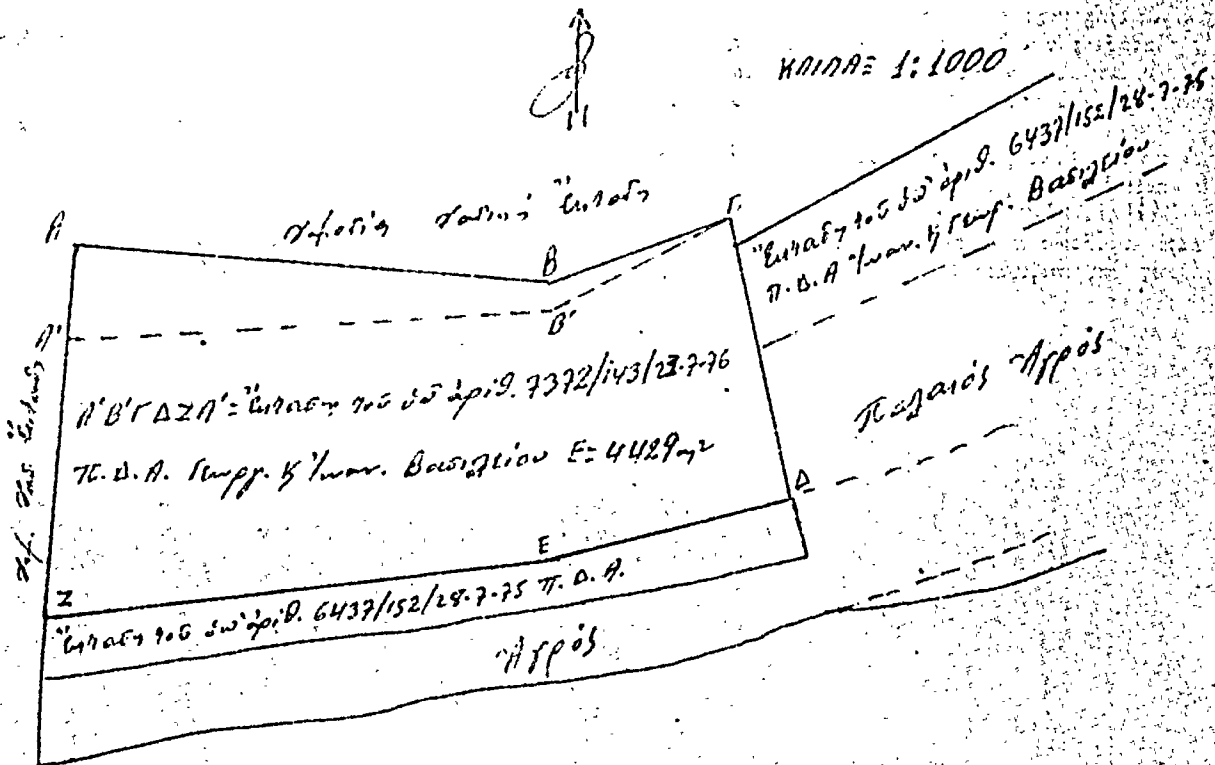 ΚΛΙΜΑΞ 1:1000
δημοσία δασική ἔκτασις
Α
Β
Γ
Ἔκτασις τοῦ ὑπ' ἀριθ. 6437/152/28-7-75
Π.Δ.Α Ἰωαν. & Γεωρ. Βασιλείου
Α'
Β'
Α'Β'ΓΔΖΑ' = Ἔκτασις τοῦ ὑπ' ἀριθ. 7372/143/23-7-76
Π.Δ.Α. Γεωργ. & Ἰωαν. Βασιλείου Ε= 4429 μ2
Παλαιός Ἀγρός
Δημ. Δασ. Ἔκτασις
Δ
Ε
Ζ
Ἔκτασις τοῦ ὑπ' ἀριθ. 6437/152/28-7-75 Π.Δ.Α.
Ἀγρός